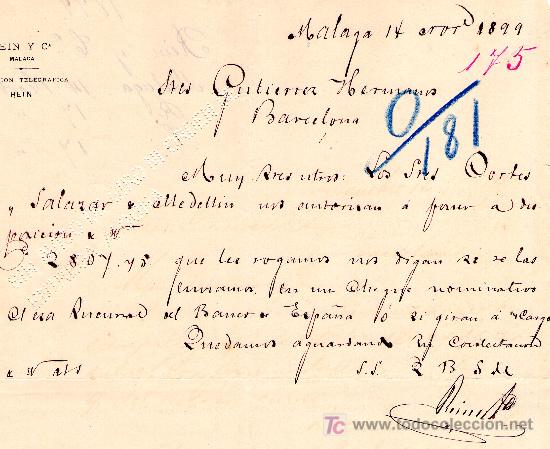 EIN Y Cª
MALAGA
ION TELEGRAFICA
REIN
Malaga 14 1899
175
Sres Gutierrez Hermanos
Barcelona
0/181
Muy Sres ntros: Los Sres Cortes
y Salazar de Medellin nos autorizan á poner a dis
posicion de
2807.48 que les rogamos nos digan si se las
enviamos en un cheque nominativo
Sucursal del Banco de España ó si giran á cargo
Quedamos aguardando su contestacion
S.S. Q B S M
TC www.todocoleccion.net